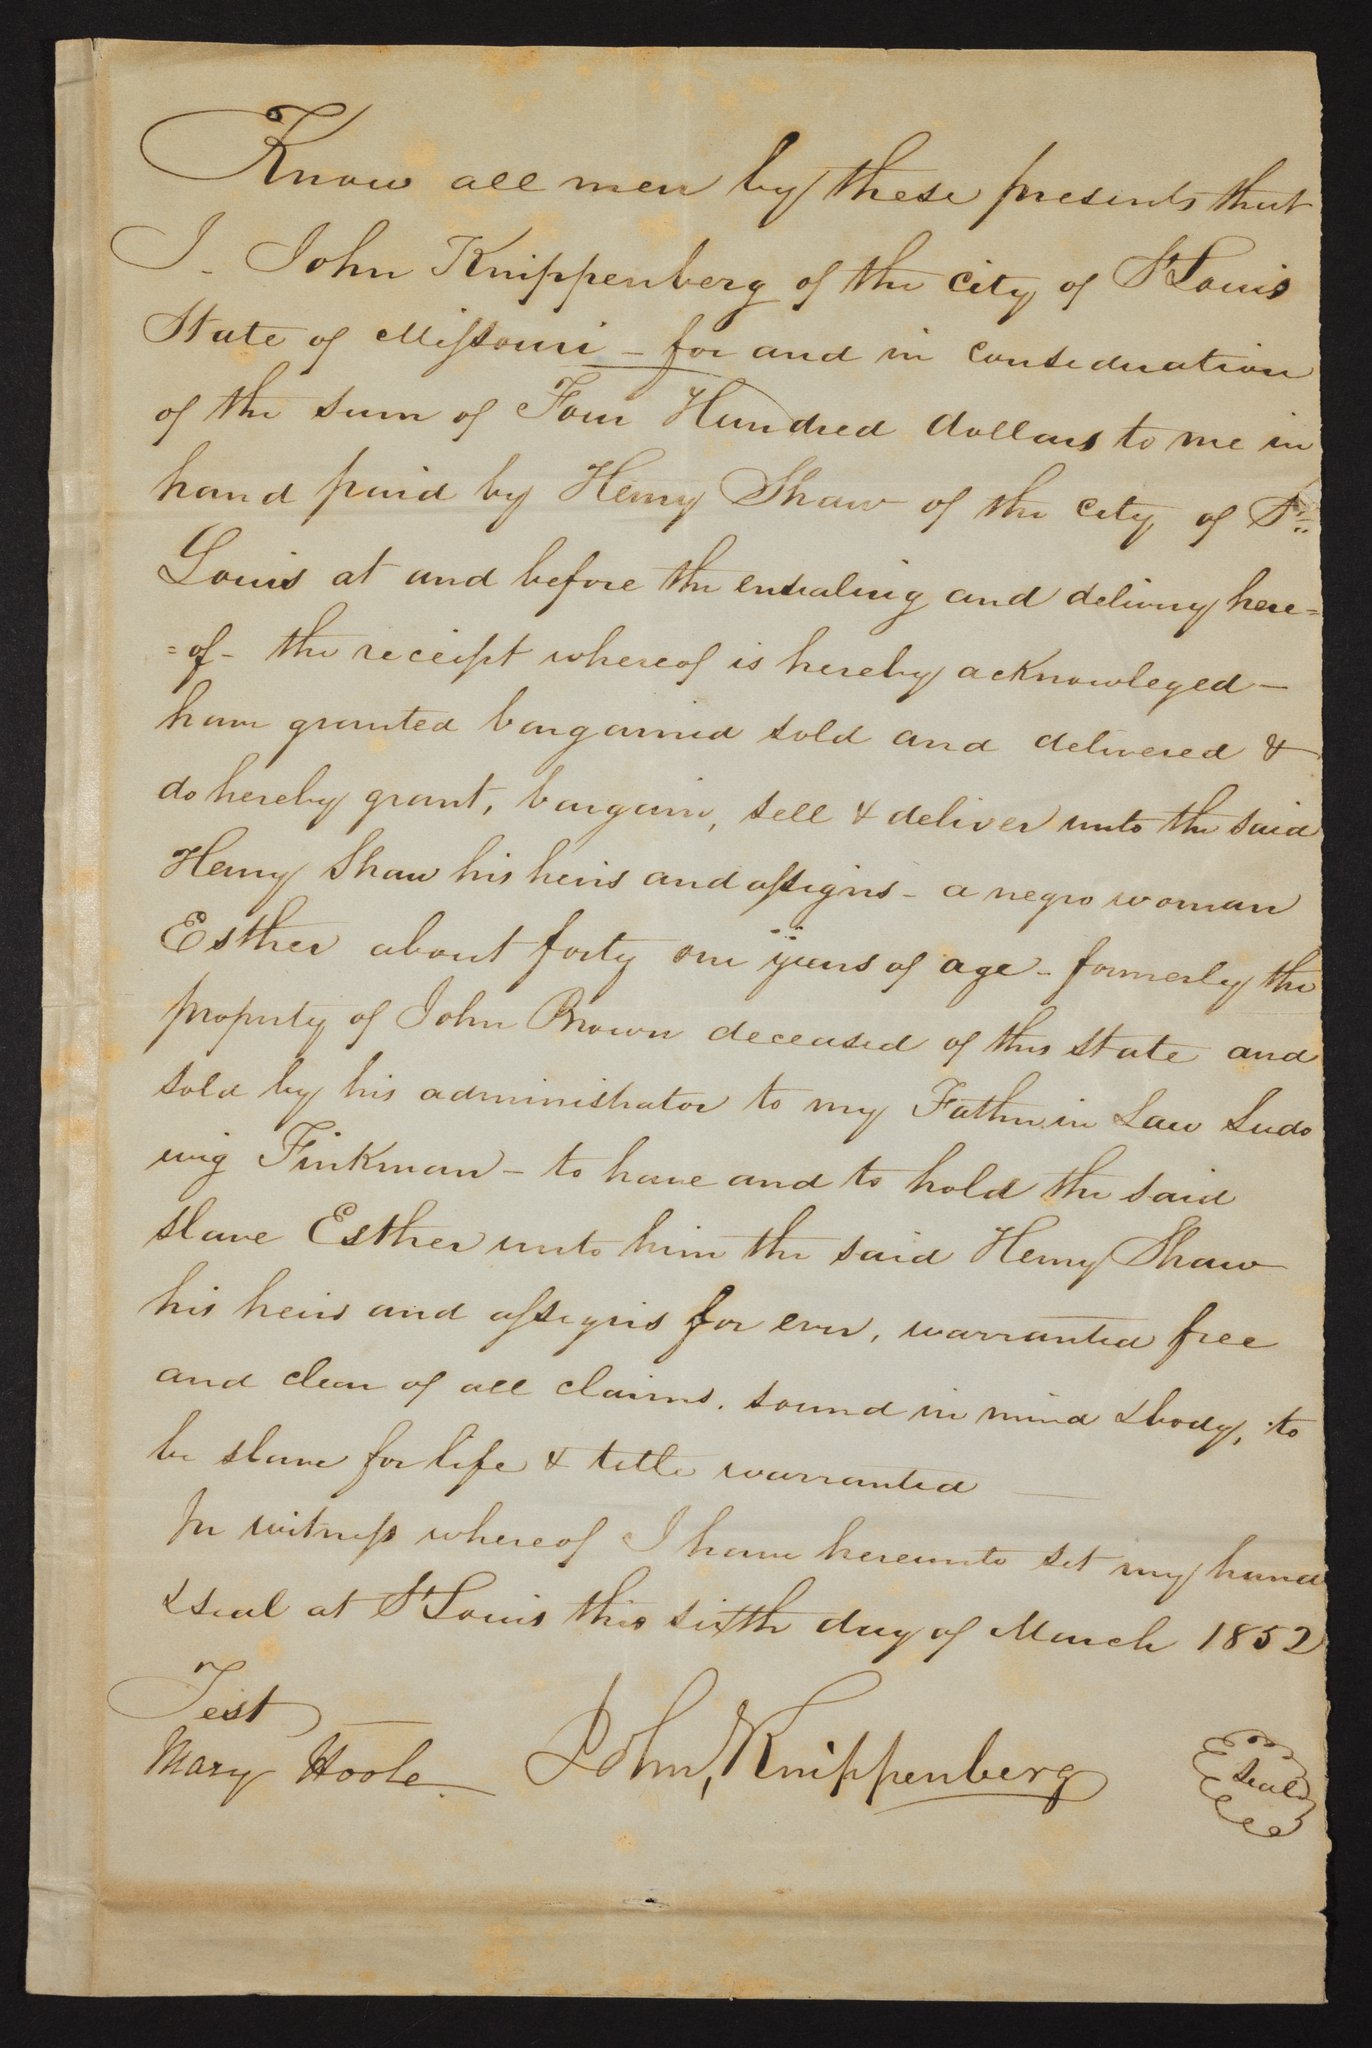 Know all men by these presents that
I - John Knippenberg of the city of St Louis
State of Missouri - for and in consideration
of the sum of Four Hundred dollars to me in
hand paid by Henry Shaw of the city of St
Louis at and before the ensealing and delivery here=
=of - the receipt whereof is hereby acknowleged -
have granted bargained sold and delivered &
do hereby grant, bargain, sell & deliver unto the said
Henry Shaw his heirs and assigns - a negro woman
Esther about forty one years of age - formerly the
property of John Brown deceased of this state and
sold by his administrator to my Father in Law Ludo
wig Finkman - to have and to hold the said
slave Esther unto him the said Henry Shaw
his heirs and assigns for ever, warranted free
and clear of all claims. sound in mind & body, to
be slave for life & title warranted —
In witness whereof I have hereunto set my hand
& seal at St Louis this sixth day of March 1852
Test
Mary Hoole John, Knippenberg seal